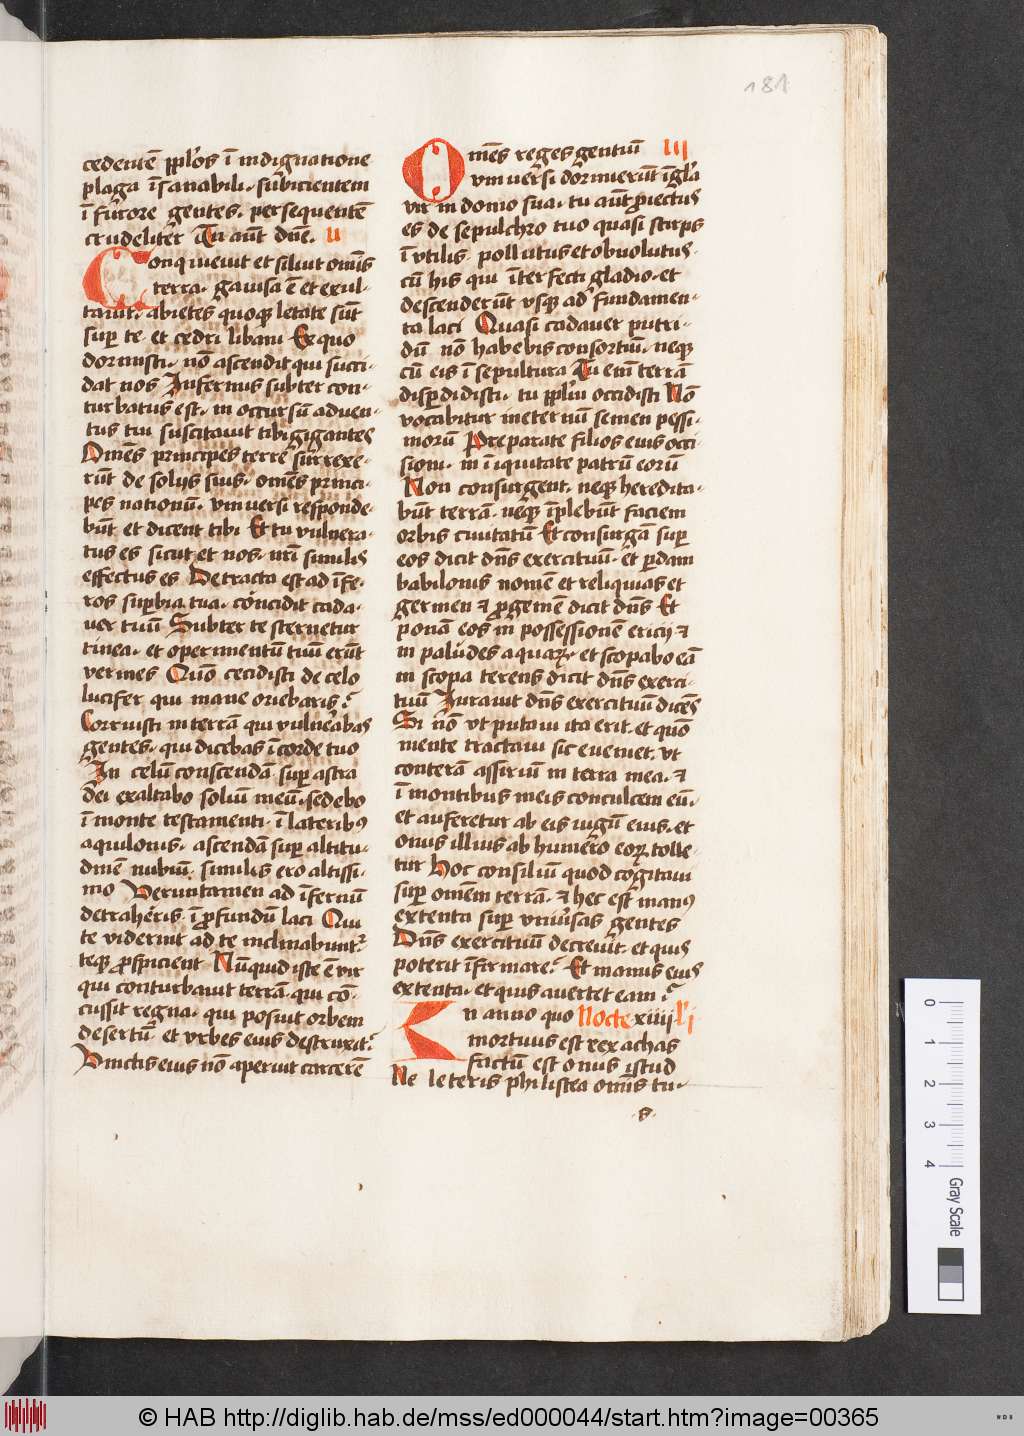 181
cedentē pplōs ī indignatione
plaga īsanabili · subicientem
ī furore gentes · persequentē
crudeliter Tu aūt dne · II
Conquievit et siluit om̄is
terra · gavisa ē et exul-
tavit · abietes quoqꝫ letate sūt
supꝑ te · et cedri libani Ex quo
dormisti · nō ascendit qui succi-
dat nos Infernus subter con-
turbatus est · in occursū adven-
tus tui suscitavit tibi gigantes
Om̄es principes terre surrexe-
rūt de solijs suis · om̄es princi-
pes nationū · universi responde-
būt et dicent tibi Et tu vulnera-
tus es sicut et nos · nr̄i similis
effectus es Detracta est ad īfe-
ros supbia tua · concidit cada-
ver tuū Subter te sternetur
tinea · et operimentū tuū erūt
vermes Quō cecidisti de celo
lucifer qui mane oriebaris ?
Corruisti in terrā qui vulnerabas
gentes · qui dicebas ī corde tuo
In celū conscendā · sup astra
dei exaltabo soliū meū · sedebo
ī monte testamenti · ī lateribꝰ
aquilonis · ascendā sup altitu-
dinē nubiū · similis ero altissi-
mo Veruntamen ad īfernū
detraheris · ī ꝓfundū laci Qui
te viderint ad te inclinabunt ·
teqꝫ ꝓspicient Nūquid iste ē vir
qui conturbavit terrā · qui cō-
cussit regna · qui posuit orbem
desertū et urbes eius destruxit ?
Vinctis eius nō aperuit carcerē
Om̄es reges gentiū III
universi dormierūt ī gl̄a
vir in domo sua · tu aūt ꝓiectus
es de sepulchro tuo quasi stirps
ī utilis pollutus et obvolutus ·
cū his qui īterfecti gladio · et
descenderūt usqꝫ ad fundamen-
ta laci Quasi cadaver putri-
dū nō habebis consortiū · neqꝫ
cū eis ī sepultura Tu em̄ terrā
disꝑdidisti · tu pplm̄ occidisti Nō
vocabitur in eternū semen pessi-
morū Preparate filios eius occi-
sioni · in īiquitate patrū eorū
Non consurgent · neqꝫ heredita-
būt terrā · neqꝫ īplebūt faciem
orbis civitatū Et consurgā sup
eos dicit dn̄s exercituū · et ꝑdam
babilonis nomē et reliquias et
germen ⁊ ꝓgeniē dicit dn̄s Et
ponā eos in possessionē ericij ⁊
in paludes aquaꝝ · et scopabo eā
in scopa terens dicit dn̄s exerci-
tuū Iuravit dn̄s exercituū dicēs
Si nō ut putavi ita erit · et quō
mente tractavi sic eveniet · ut
conterā assiriū in terra mea · ⁊
ī montibus meis conculcem eū ·
et auferetur ab eis iugū eius · et
onus illius ab humero eoꝝ tolle-
tur Hoc consiliū quod cogitavi
sup om̄em terrā · ⁊ hec est manꝰ
extenta sup univsas gentes
Dn̄s exercituū decrevit · et quis
poterit īfirmare ? Et manus eius
extenta · et quis avertet eam ?
In anno quo Nocte xiiij li
mortuus est rex achas
factū est onus istud
Ne leteris philistea om̄is tu-
· s ·
0 1 2 3 4 Gray Scale
© HAB http://diglib.hab.de/mss/ed000044/start.htm?image=00365